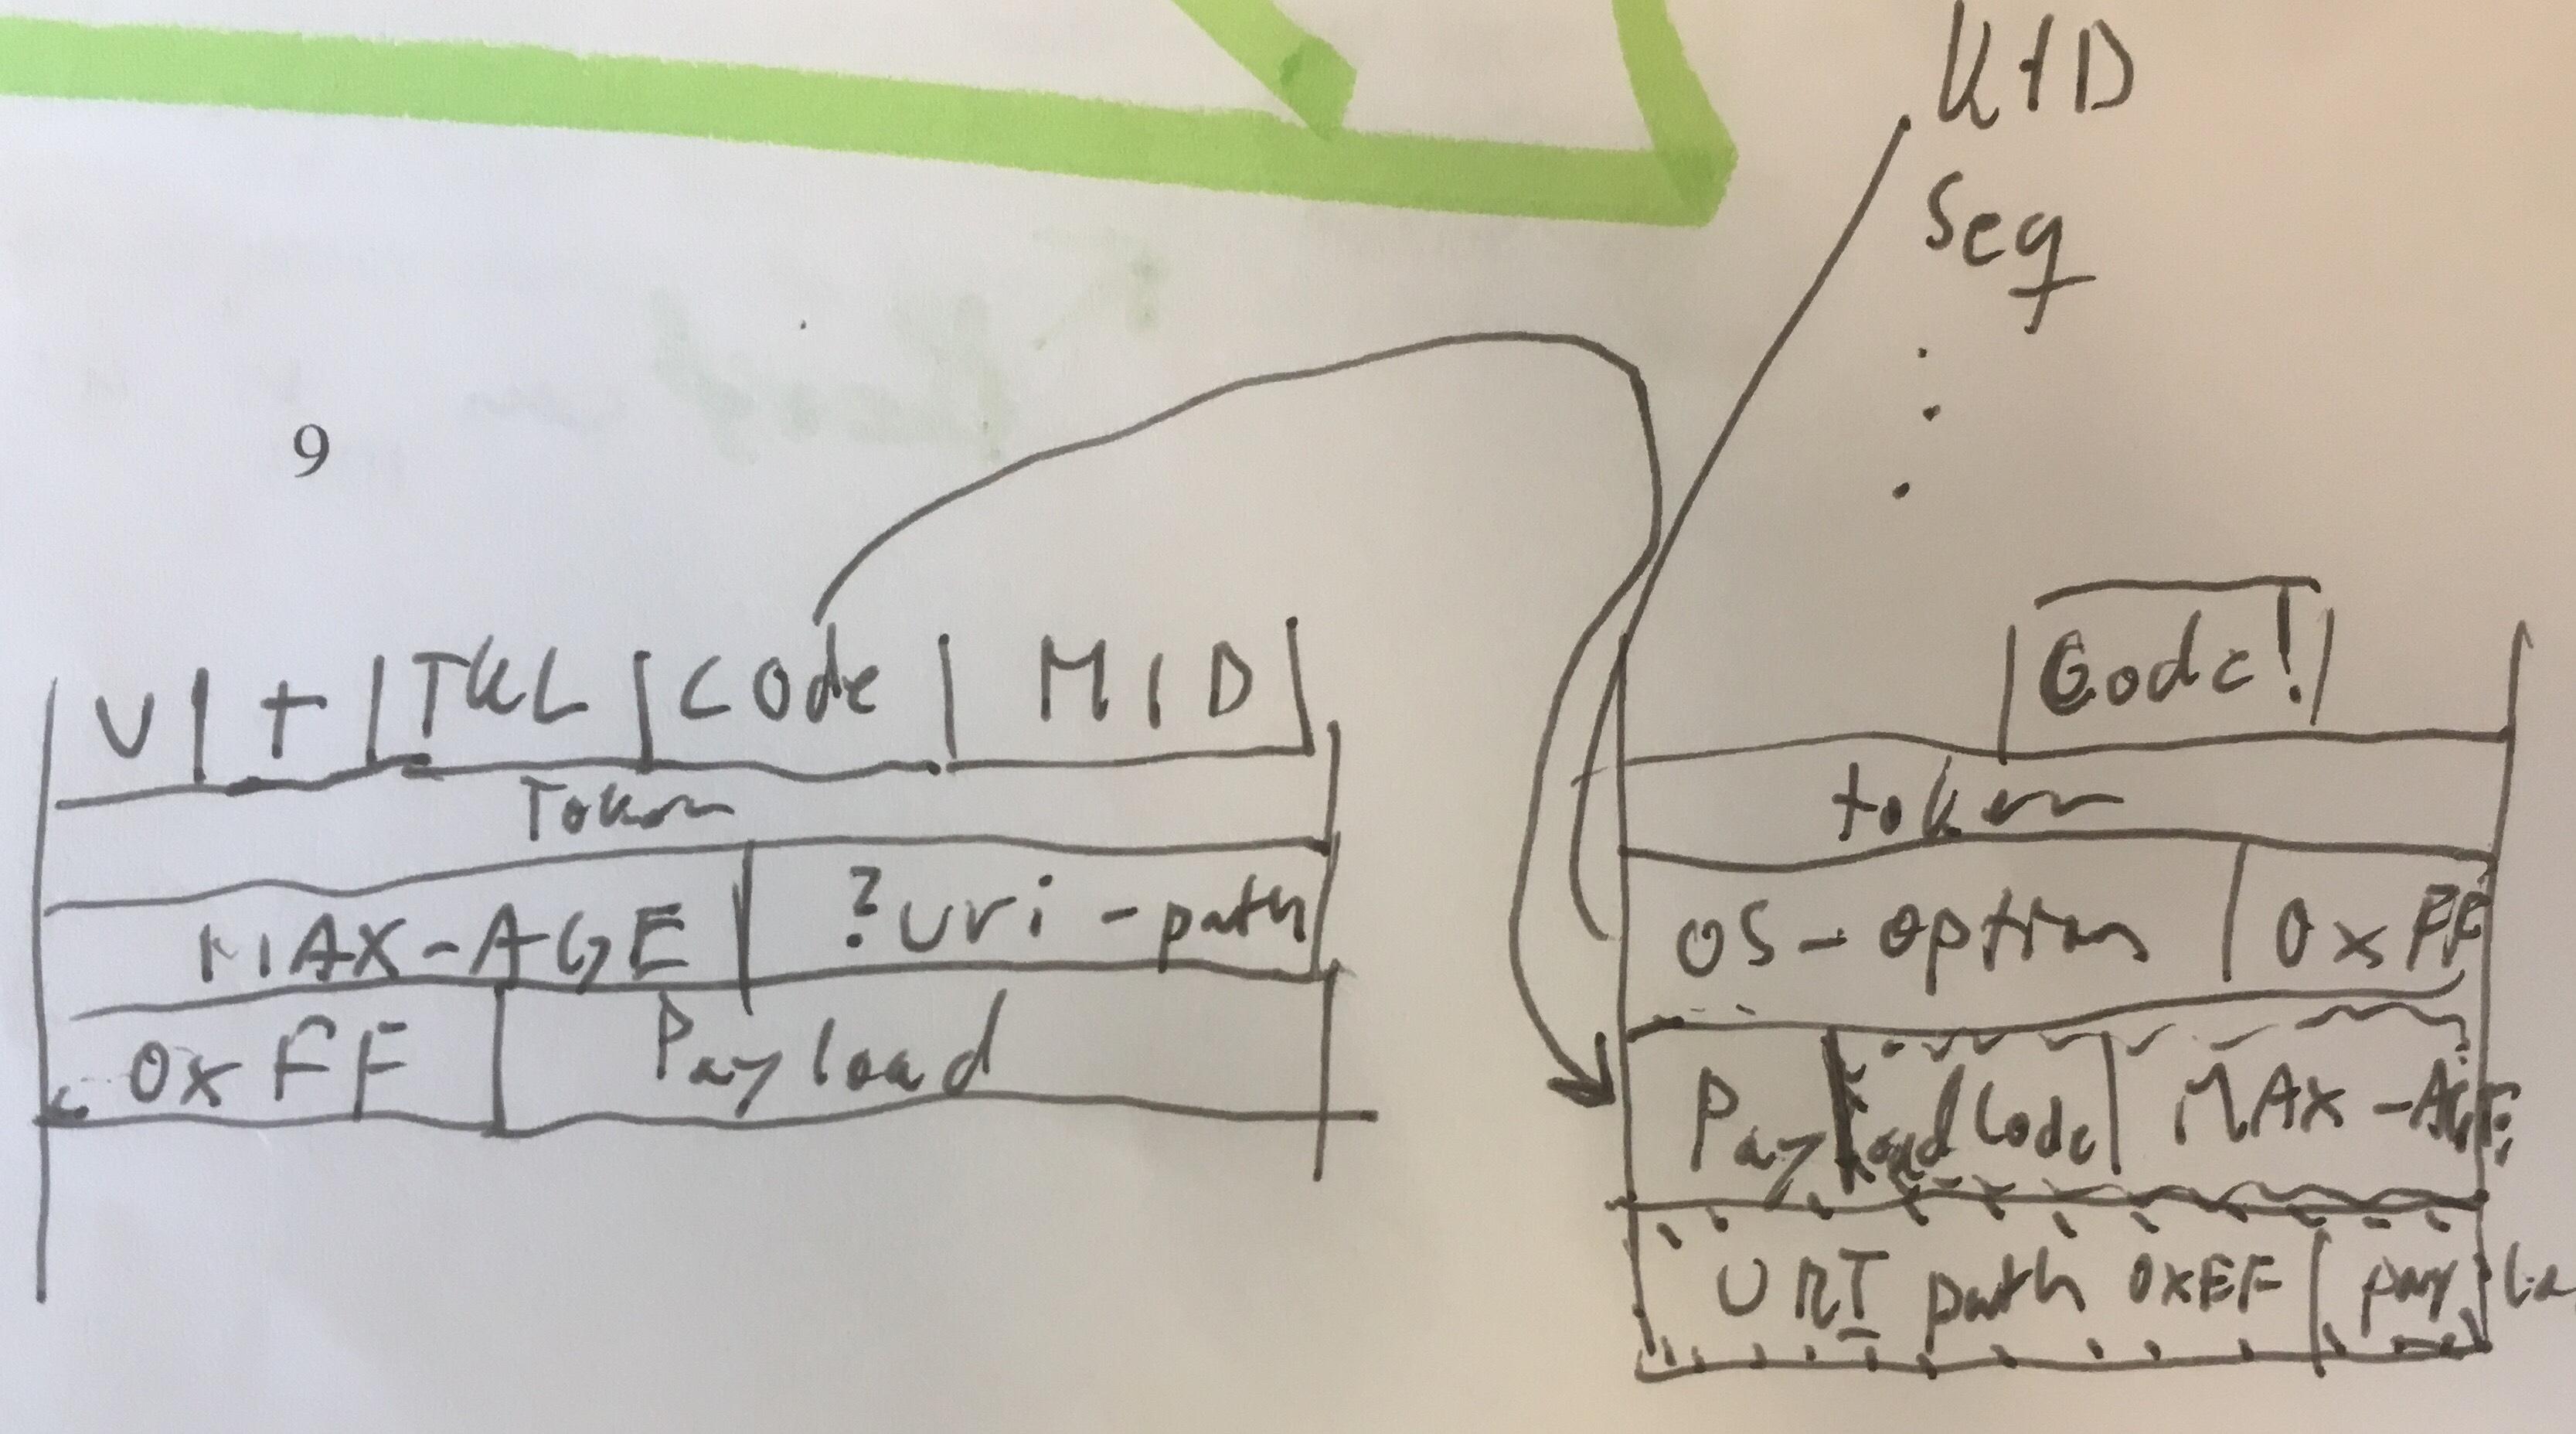 KID
Seq
9
V | T | TKL | Code | MID
Token
MAX-AGE | ?uri-path
0xFF | Payload
| Code! |
token
OS-option | 0xFF
Pay | load Code | MAX-AGE
URI path 0xFF | pay